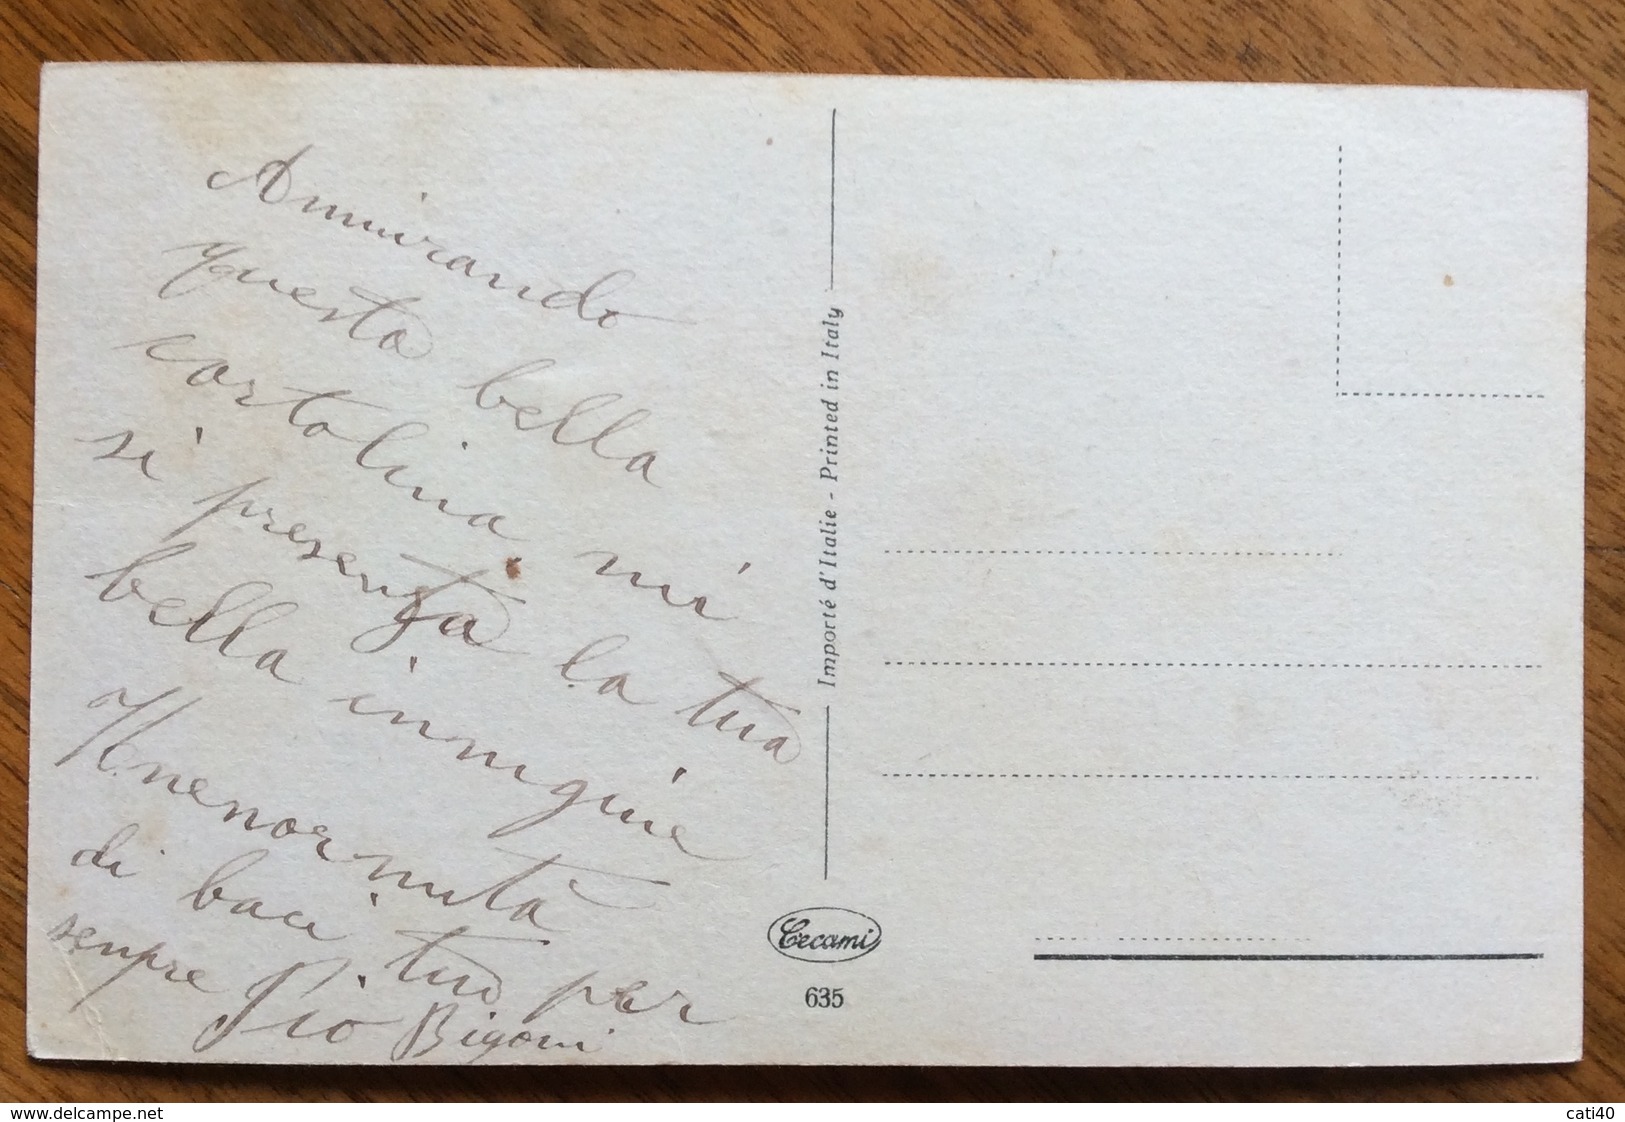 Ammirando
questa bella
cartolina mi
si presenta la tua
bella immagine
di baci tuo per
sempre Pio Bigoni
Importé d'Italie - Printed in Italy
Cecami
635
delcampe.net
cati40